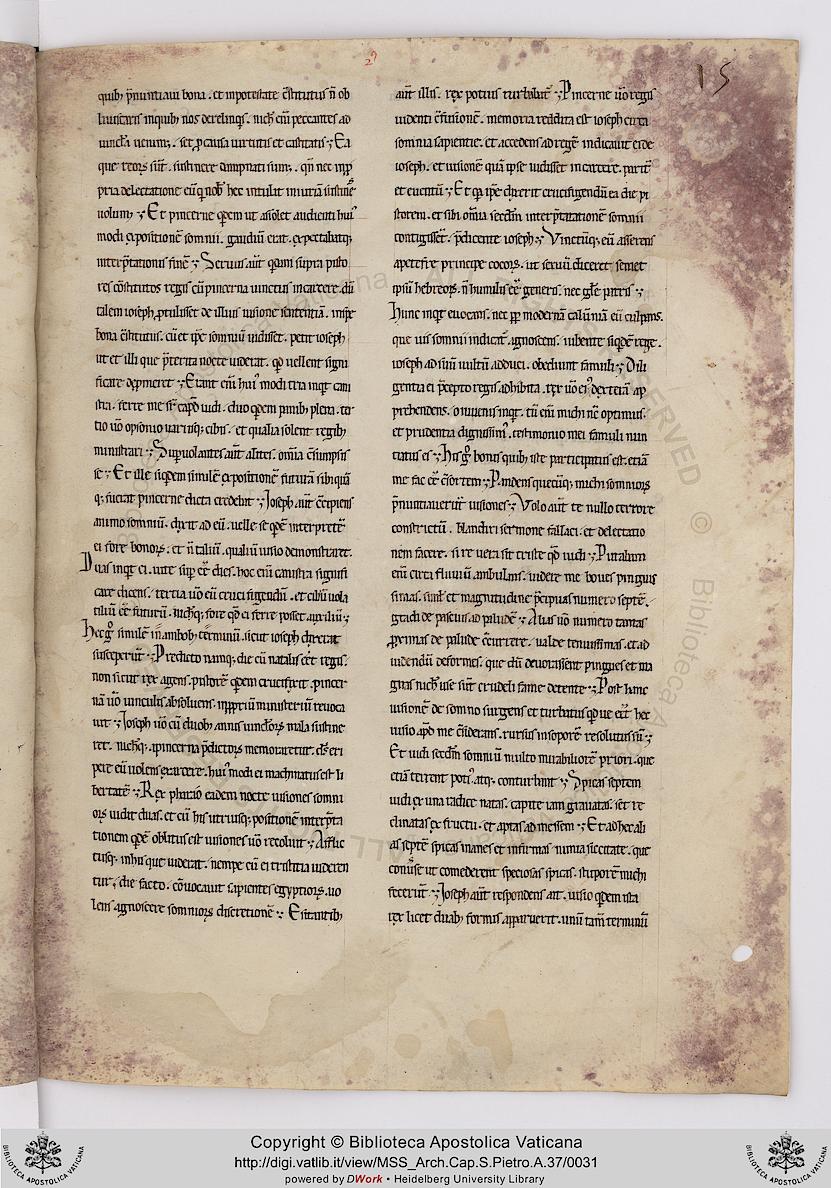 29
15
quib; p̃nuntiaui bona. et in potestate c̃stitutus n̄ ob
liuiscaris inquib; nos derelinq̄s. nich̃ eni᷒ peccantes ad
uincl̃a uenim᷒. set ꝓ causa uirtutis et castitatis ⁊ Ea
que reor᷒ sūt. sustinere dampnati sum᷒. qñ nec in ꝓ
pria delectatione eū q̃ nob̃ hec intulit iniuriā sustinẽ
uolum᷒ ⁊ Et pincerne q̃dem ut assolet audienti hui᷒
modi expositionē somnii. gaudiū erat. expectabatq;
interp̃tationis finē ⁊ Seruus aūt quidam supra pisto
res c̃stitutus regis cū pincerna uinctus in carcere. dū
talem ioseph ꝓtulisset de illius uisione sententiā. in spe
bona c̃stitutus. cū et ip̃e somniū uidisset. petit ioseph
ut et illi que p̃terita nocte uiderat. qd̄ uellent signi
ficare exp̃meret ⁊ Erant eni᷒ hui᷒ modi tria inquit cani
stra. ferre me sr̃ caput uidi. duo q̃dem panib; plena. ter
tio uō opsonio uariisq; cibis. et qualia solent regib;
ministrari ⁊ Sup̃uolantes aūt alites. omīa c̃sumpsis
se ⁊ Et ille siq̃dem similē expositionē futurā sibi quā
q; fuerat pincerne dicta credebat ⁊ Ioseph aūt c̃cipiens
animo somniū. dixit ad eū. uelle se q̃dē interpretẽ
ei fore bonor᷒. et n̄ taliū. qualiū uisio demonstraret.
Duas inqt ei. uite sup̃ eē dies. hoc eni᷒ canistra signifi
care dicens. tertia uō eū cruci figendū. et cibū uola
tiliū eē futurū. nichq; fore qd̄ ei ferre posset auxiliū ⁊
Hec g̃ similē in ambob; terminū. sicut ioseph dixerat
susceperūt ⁊ Predicto namq; die cū natalis eēt regis.
non sicut rex agens. pistorē q̃dem crucifixit. pincer
nā uō uinculis absoluens. in ꝓpriū ministeriū reuoca
uit ⁊ Ioseph uō cū duob; annis uinclor᷒ mala sustine
ret. nichq; a pincerna p̃dictor᷒ memoraretur. d̃s eri
pere eū uolens ex carcere. hui᷒ modi ei machinatus est li
bertatē ⁊ Rex pharao eadem nocte uisiones somni
or᷒ uidit duas. et cū his utriusq; positionē interp̃ta
tionem q̃dē oblitus est uisiones uō recoluit ⁊ Afflic
tusq; in his que uiderat. nempe cū ei tristitia uideren
tur. die facto. cōuocauit sapientes egyptior᷒. uo
lens agnoscere somnior᷒ discretionē ⁊ Esitantib;
aūt illis. rex potius turbabat̃ ⁊ Pincerne uō regis
uidenti c̃fusionē. memoria reddita est ioseph circa
somnia sapientie. et accedens ad regē indicauit ei de
ioseph. et uisionē quā ipse uidisset in carcere. parit̃
et euentū ⁊ Et qa ip̃e dixerit crucifigendū ea die pi
storem. et sibi omīa secdm̄ interp̃tationē somnii
contigisset. p̃dicente ioseph ⁊ Vinctūq; eū asserens
apetefre principe cocor᷒. ut seruū diceret semet
ipsū hebreor᷒. n̄ humilis eē generis. nec gl̃e patris ⁊
Hunc inqt euocans. nec ꝓꝑ modernā calūniā eū culpans.
que uis somnii indicat̃ agnoscens. iubente siq̃dē rege.
ioseph ad suū uultū adduci. obediunt famuli ⁊ Dili
gentia ei p̃cepto regis adhibita. rex uō ei᷒ dexterā ap
prehendens. o iuuenis inqt. tū eni᷒ michi n̄c optimus.
et prudentia dignissim᷒. testimonio mei famuli nun
tiatus es ⁊ His g̃ bonis quib; iste participatus est. etiā
me fac eē c̃sortem ⁊ Pandens quecūq; michi somnior᷒
p̃nuntiauerūt uisiones ⁊ Volo aūt te nullo terrore
constrictū. blandiri sermone fallaci. et delectatio
nem facere. si re uera sit triste qd̄ uidi ⁊ Putabam
eni᷒ circa fluuiū ambulans. uidere me boues pingues
simas. simł et magnitudine p̃cipuas numero septē.
gradi de pascuis ad paludē ⁊ Alias uō numero tantas
ꝓximas de palude c̃currere. ualde tenuissimas. et ad
uidendū deformes. que dū deuorassent pingues et ma
gnas nich̃ use sūt crudeli fame detente ⁊ Post hanc
uisionē de somno surgens et turbatus q̃ que eēt hec
uisio apd̄ me c̃siderans. rursus in soporē resolutus sū ⁊
Et uidi secdm̄ somniū multo mirabiliorē priori. que
etiā terrent poti᷒ atq; conturbant ⁊ Spicas septem
uidi ex una radice natas. capite iam grauatas. set re
clinatas ex fructu. et aptas ad messem ⁊ Et ad hec ali
as septē spicas inanes et infirmas nimia siccitate. que
conūse ut comederent speciosas spicas. stuporē michi
fecerūt ⁊ Ioseph aūt respondens ait. uisio q̃dem ista
rex licet duab; formis apparuerit. unū tam̄ terminū
Copyright © Biblioteca Apostolica Vaticana
http://digi.vatlib.it/view/MSS_Arch.Cap.S.Pietro.A.37/0031
powered by DWork • Heidelberg University Library